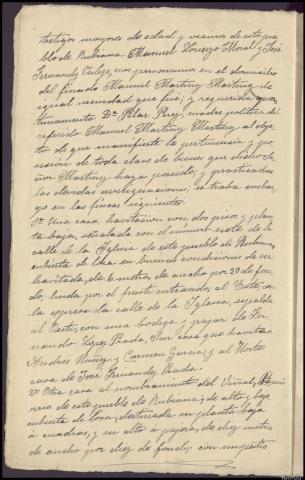 testigos mayores de edad y vecinos de este pue
blo de Rubiana Manuel Lorenzo Moral y José
Fernandez Vidigo, nos personamos en el domicilio
del finado Manuel Martinez Martinez de
igual vecindad que fué; y requerida opor
tunamente Dª Pilar Perez, madre politica del
referido Manuel Martinez Martinez, al obje
to de que manifieste la pertenencia y po
sesion de toda clase de bienes que dicho se
ñor Martinez haya poseido; y practicadas
las debidas averiguaciones; se traba embar
go en las fincas siguientes:
1ª Una casa habitacion con dos pisos y plan
ta baja, señalada con el número siete de la
calle de la Iglesia de este pueblo de Rubiana,
cubierta de losa en buenas condiciones de ser
havitada, de 6 metros de ancho por 20 de fon
do; linda por el frente entrando, al Este, con
la expresada calle de la Iglesia, espalda
al Oeste, con una bodega y pajar de Fer
nando López Prada, Sur casa que havitan
Andrés Nuñez y Carmen Garcia; y al Norte
casa de José Fernandez Prada.
2ª Otra casa al nombramiento del Viñal,
de este pueblo de Rubiana; de alto y bajo
cubierta de losa, destinada su planta baja
á cuadras, y su alto a pajar, de diez metros
de ancho por diez de fondo, con un patio